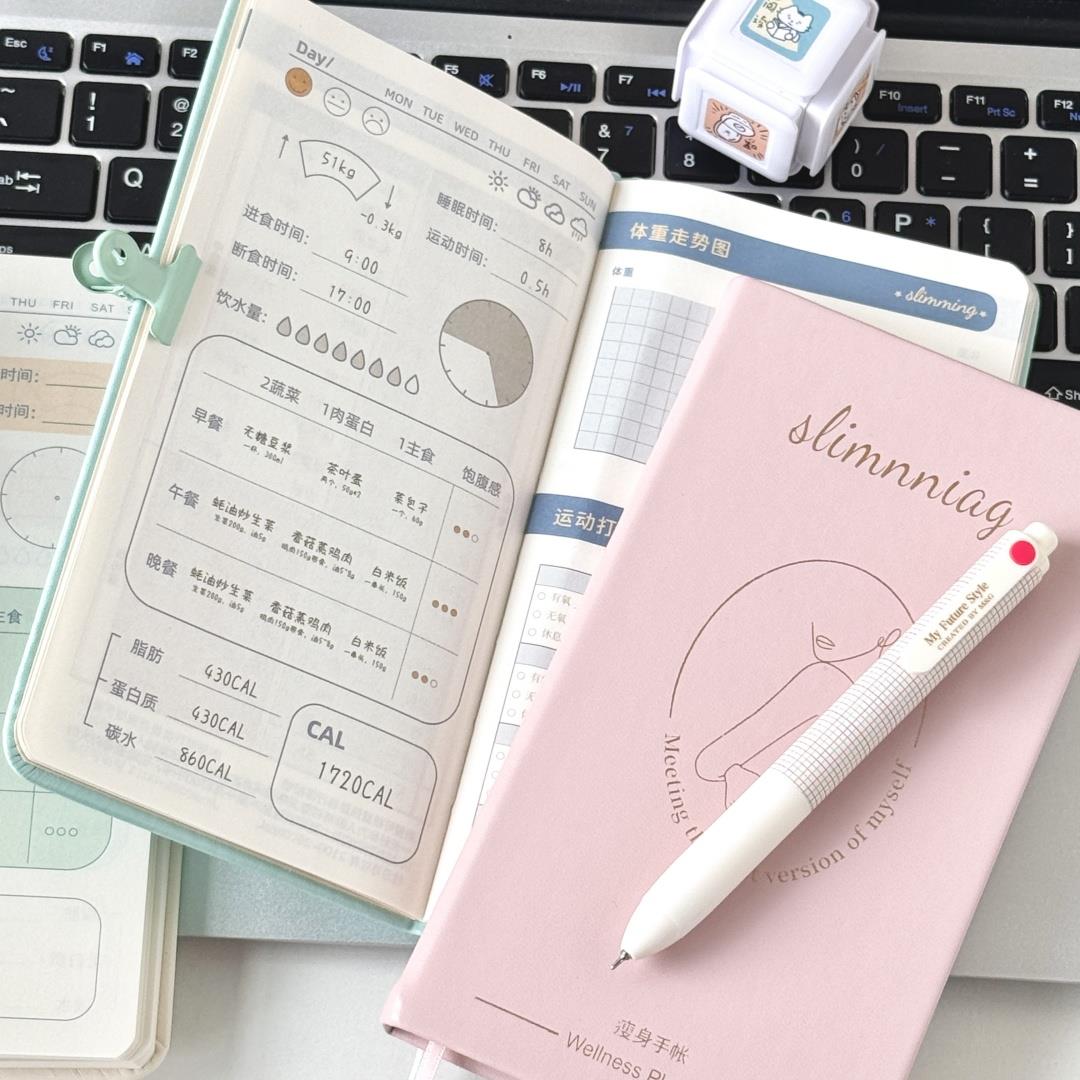 Esc
F1
F2
F5
F6
F7
F10
Insert
F11
Prt Sc
F12
~
!
1
@
2
&
7
7
8
)
0
/
—
-
+
=
Q
6
P
*
{
[
}
Day/
MON TUE WED THU FRI SAT SUN
51kg
-0.3kg
睡眠时间: 8h
运动时间: 0.5h
进食时间: 9:00
断食时间: 17:00
饮水量:
2蔬菜 1肉蛋白 1主食 饱腹感
早餐 无糖豆浆 茶叶蛋 菜包子
一杯, 300ml 两个, 50g*2 一个, 60g
午餐 蚝油炒生菜 香菇蒸鸡肉 白米饭
生菜200g, 油5g
晚餐 蚝油炒生菜 香菇蒸鸡肉 白米饭
生菜200g, 油5g
脂肪 430CAL
蛋白质 430CAL
碳水 860CAL
CAL
1720CAL
THU FRI SAT
时间:
时间:
主食
体重走势图
slimming
体重
运动打
有氧
无氧
休息
slimnniag
Meeting
version of myself
瘦身手帐
Wellness
My Future Style
CREATED BY M&G